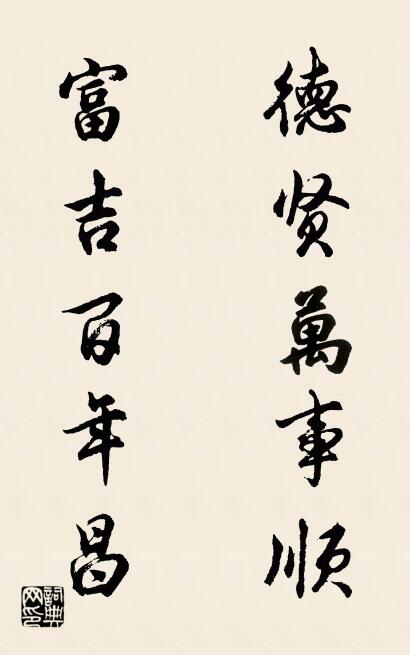 德贤萬事顺
富吉百年昌
詞典
网印